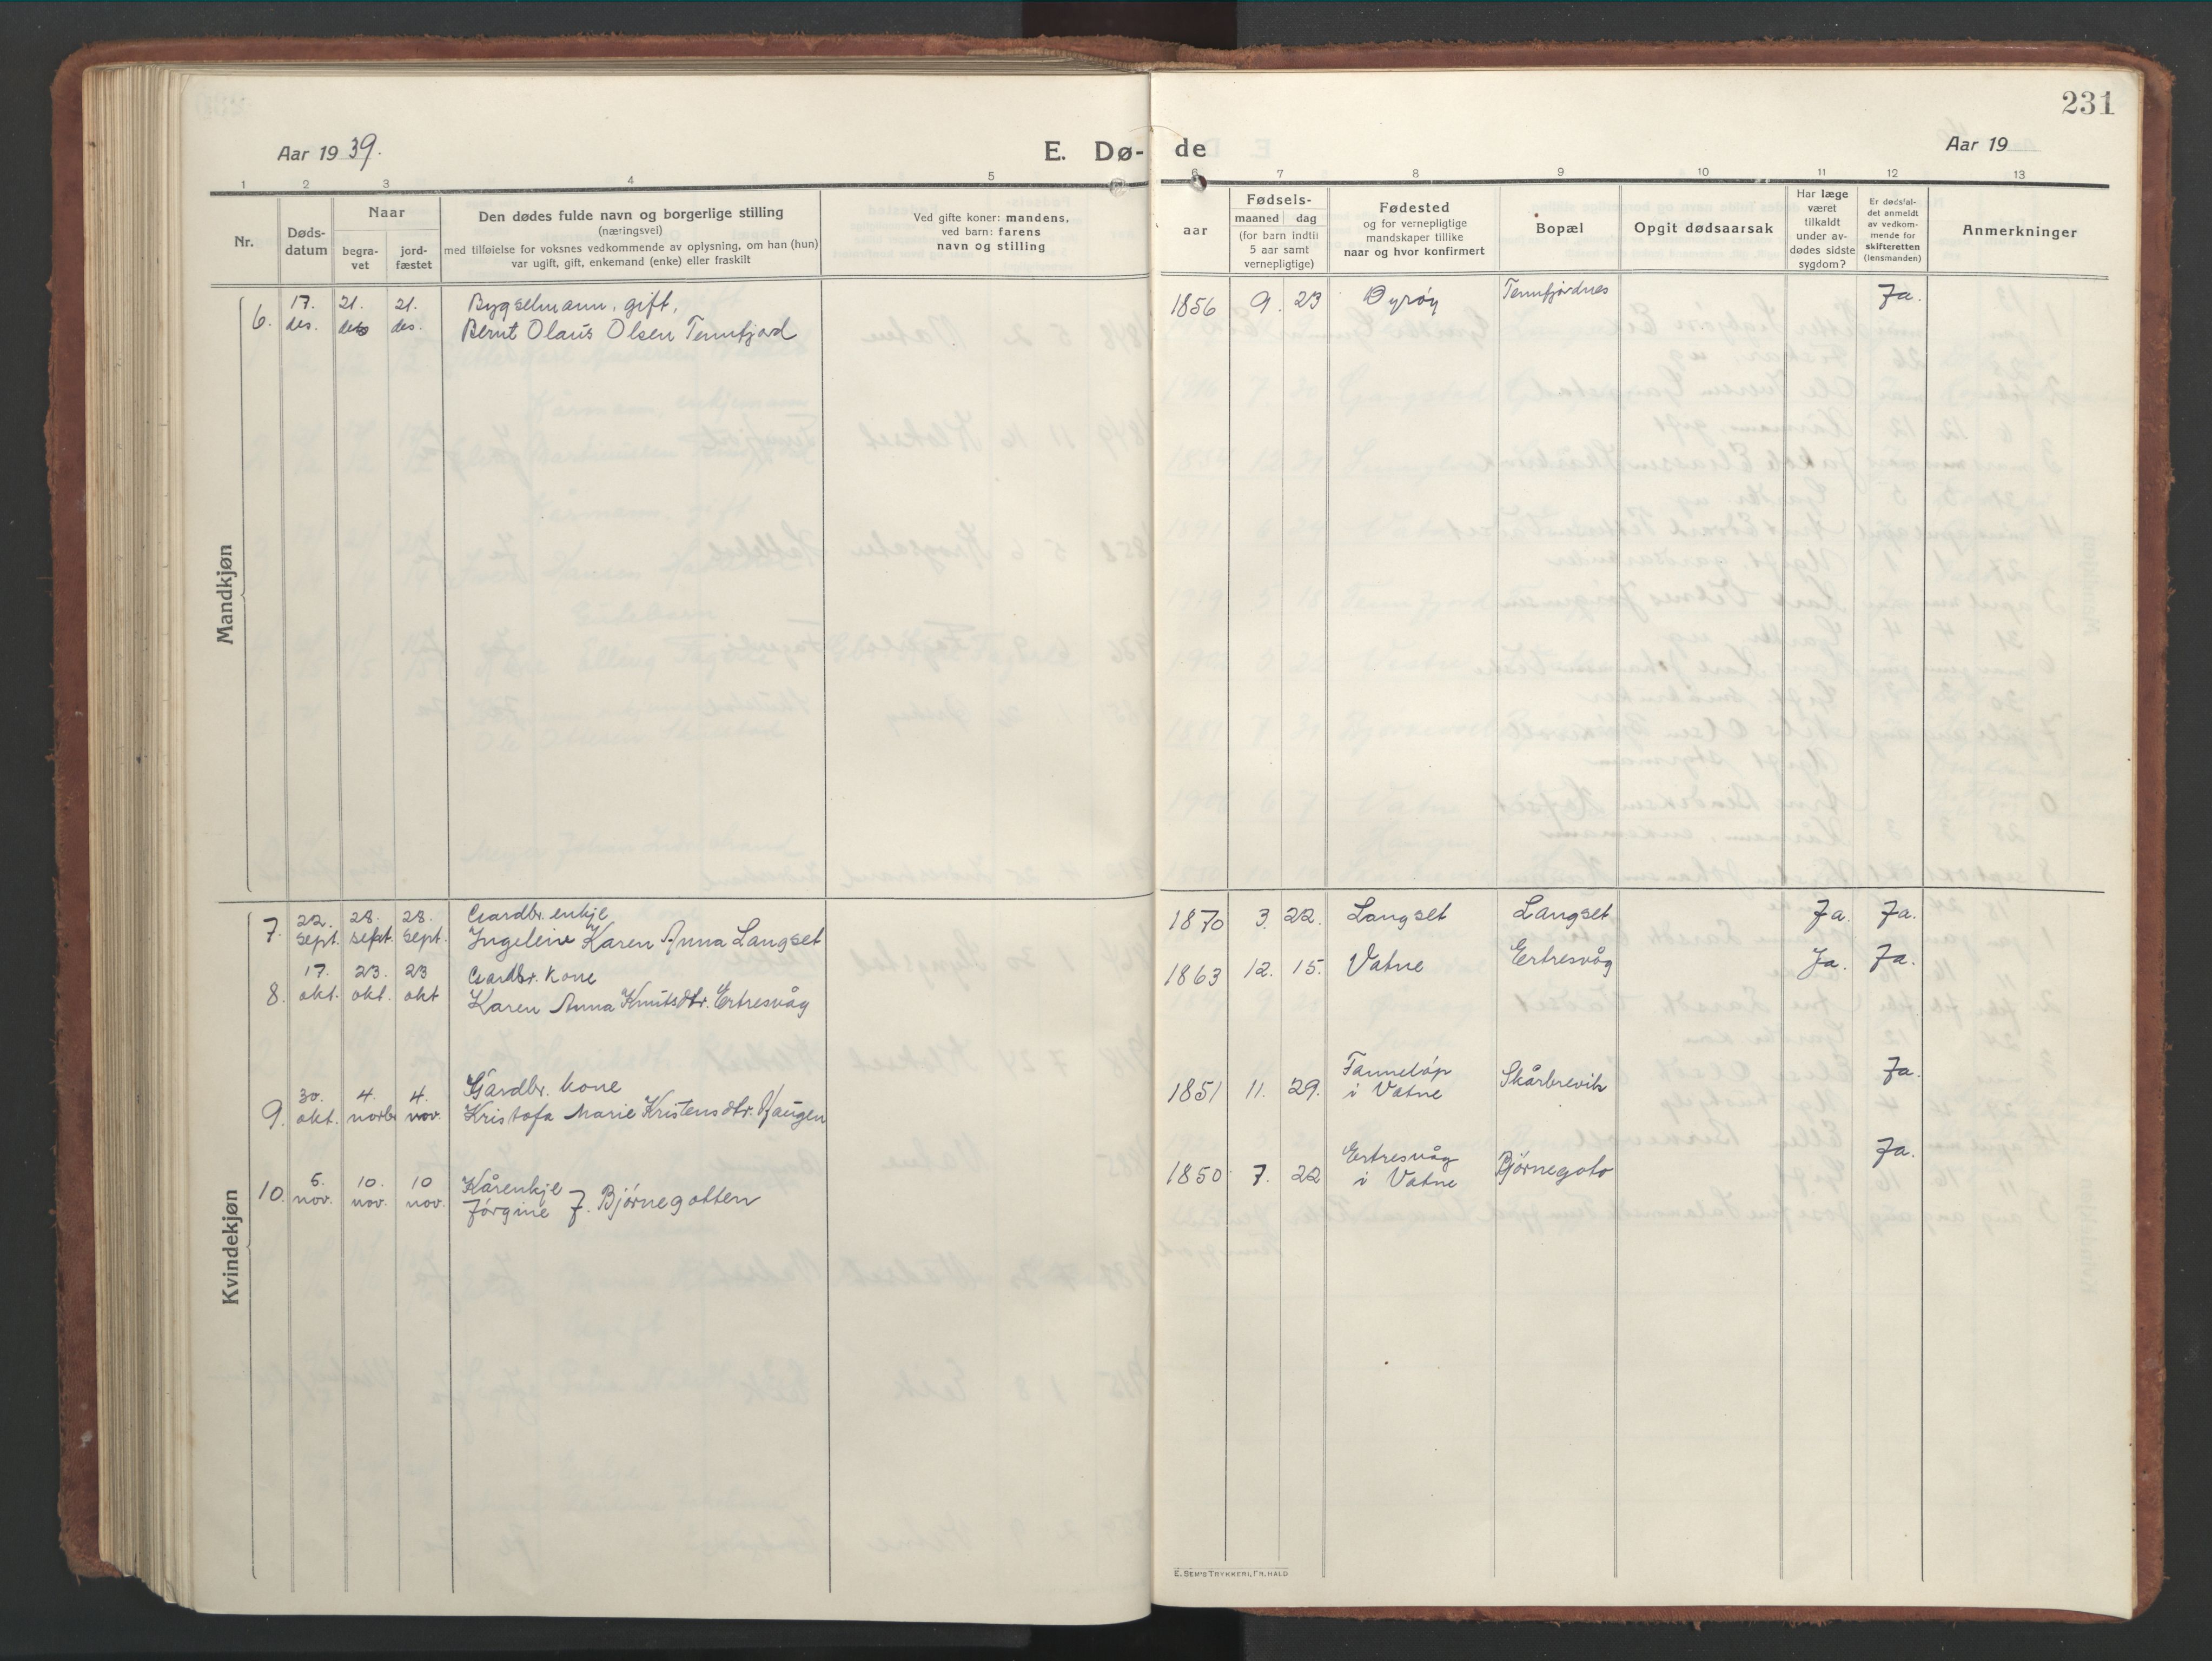 231
Aar 19 39.
E. Dø- de
Aar 19
1 2 3 4 5 6 7 8 9 10 11 12 13
Nr.
Døds-
datum
Naar
begra-
vet
jord-
fæstet
Den dødes fulde navn og borgerlige stilling
(næringsvei)
med tilføielse for voksnes vedkommende av oplysning, om han (hun)
var ugift, gift, enkemand (enke) eller fraskilt
Ved gifte koner: mandens,
ved barn: farens
navn og stilling
Fødsels-
aar
maaned dag
(for barn indtil
5 aar samt
vernepligtige)
Fødested
og for vernepligtige
mandskaper tillike
naar og hvor konfirmert
Bopæl
Opgit dødsaarsak
Har læge
været
tilkaldt
under av-
dødes sidste
sygdom?
Er dødsfal-
det anmeldt
av vedkom-
mende for
skifteretten
(lensmanden)
Anmerkninger
Mandkjøn
17. 21. 21. Bygselmann, gift,
6. des. des. Bernt Olaus Olsen Tennfjord
1856 9. 23 Oyrøy Tennfjordnes Ja.
Kvindekjøn
22. 28. 28. Gardbr. enkje
7. sept. sept. sept. Ingeleine Karen Anna Langset
1870 3. 22. Langset Langset Ja. Ja.
17. 23. 23 Gardbr. kone
8. okt. okt. okt Karen Anna Knutsdtr. Ertresvåg
1863 12. 15. Vatne Ertresvåg Ja. Ja.
30. 4. 4. Gardbr. kone
9. okt. novbr nov. Kristofa Marie Kristensdtr. Haugen
1851 11. 29. Fanneløp
i Vatne
Skårbrevik Ja.
5. 10. 10 Kårenkje
10. nov. nov. nov. Jørgine J. Bjørnegotten
1850 7. 22 Ertresvåg
i Vatne
Bjørnegoto Ja.
E. SEM'S TRYKKERI, FR.HALD